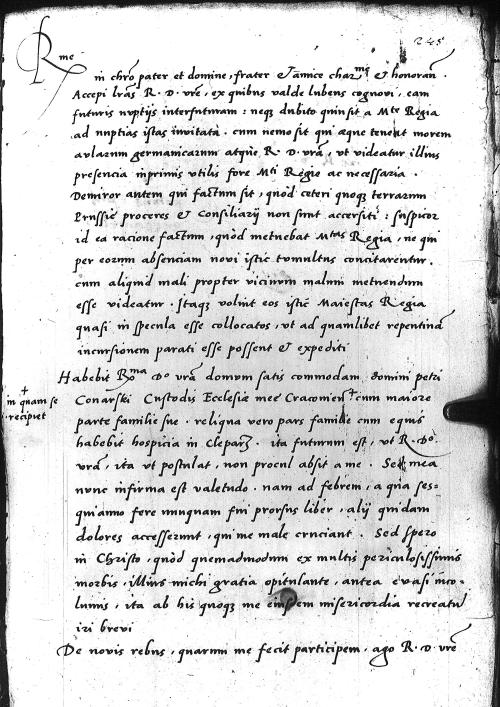 245
Rme
in chro pater et domine, frater & amice charme & honoran.
Accepi lras R. D. vre, ex quibus valde lubens cognovi, eam
futuris nuptijs interfuturam: neq dubito quin sit a Mte Regia
ad nuptias istas invitata. cum nemo sit qui æque teneat morem
aularum germanicarum atque R. D. vra, ut videatur illius
presencia inprimis utilis fore Mti Regie ac necessaria.
Demiror autem qui factum sit, quòd ceteri quoq terrarum
Prussie proceres & Consiliarij non sint accersiti: suspicor
id ea racione factum, quòd metuebat Mtas Regia, ne qui
per eorum absenciam novi istic tumultus concitarentur.
cum aliquid mali propter vicinum malum metuendum
esse videatur. Itaq voluit eos istic Maiestas Regia
quasi in specula esse collocatos, ut ad quamlibet repentina
incursionem parati esse possent & expediti
Habebit Rma Do vra domum satis commodam domini petri
Conarski Custodis Ecclesiæ mee Cracovien + cum maiore
+
in quam se
recipiet
parte familie sue. reliqua vero pars familie cum equis
habebit hospicia in Clepar. ita futurum est, ut R. Do.
vra, ita ut postulat, non procul absit a me. Sed mea
nunc infirma est valetudo. nam ad febrem, a qua ses=
quianno fere nunquam fui prorsus liber, alij quidam
dolores accesserunt, qui me male cruciant. Sed spero
in Christo, quòd quemadmodum ex multis periculosissimis
morbis, illius michi gratia opitulante, antea evasi inco-
lumis, ita ab his quoq me eiusdem misericordia recreatu
iri brevi
De novis rebus, quarum me fecit participem, ago R. D. vre